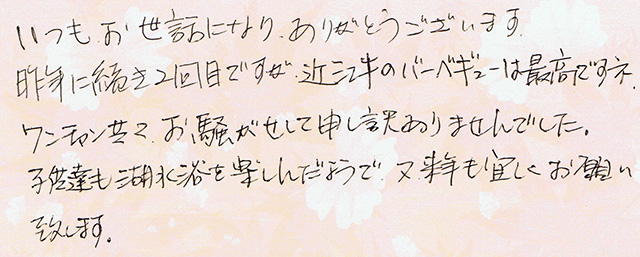 いつもお世話になり、ありがとうございます。
昨年に続き2回目ですが、近江牛のバーベキューは最高ですネ。
ワンチャン共々、お騒がせして申し訳ありませんでした。
子供達も湖水浴を楽しんだようで、又来年も宜しくお願い
致します。